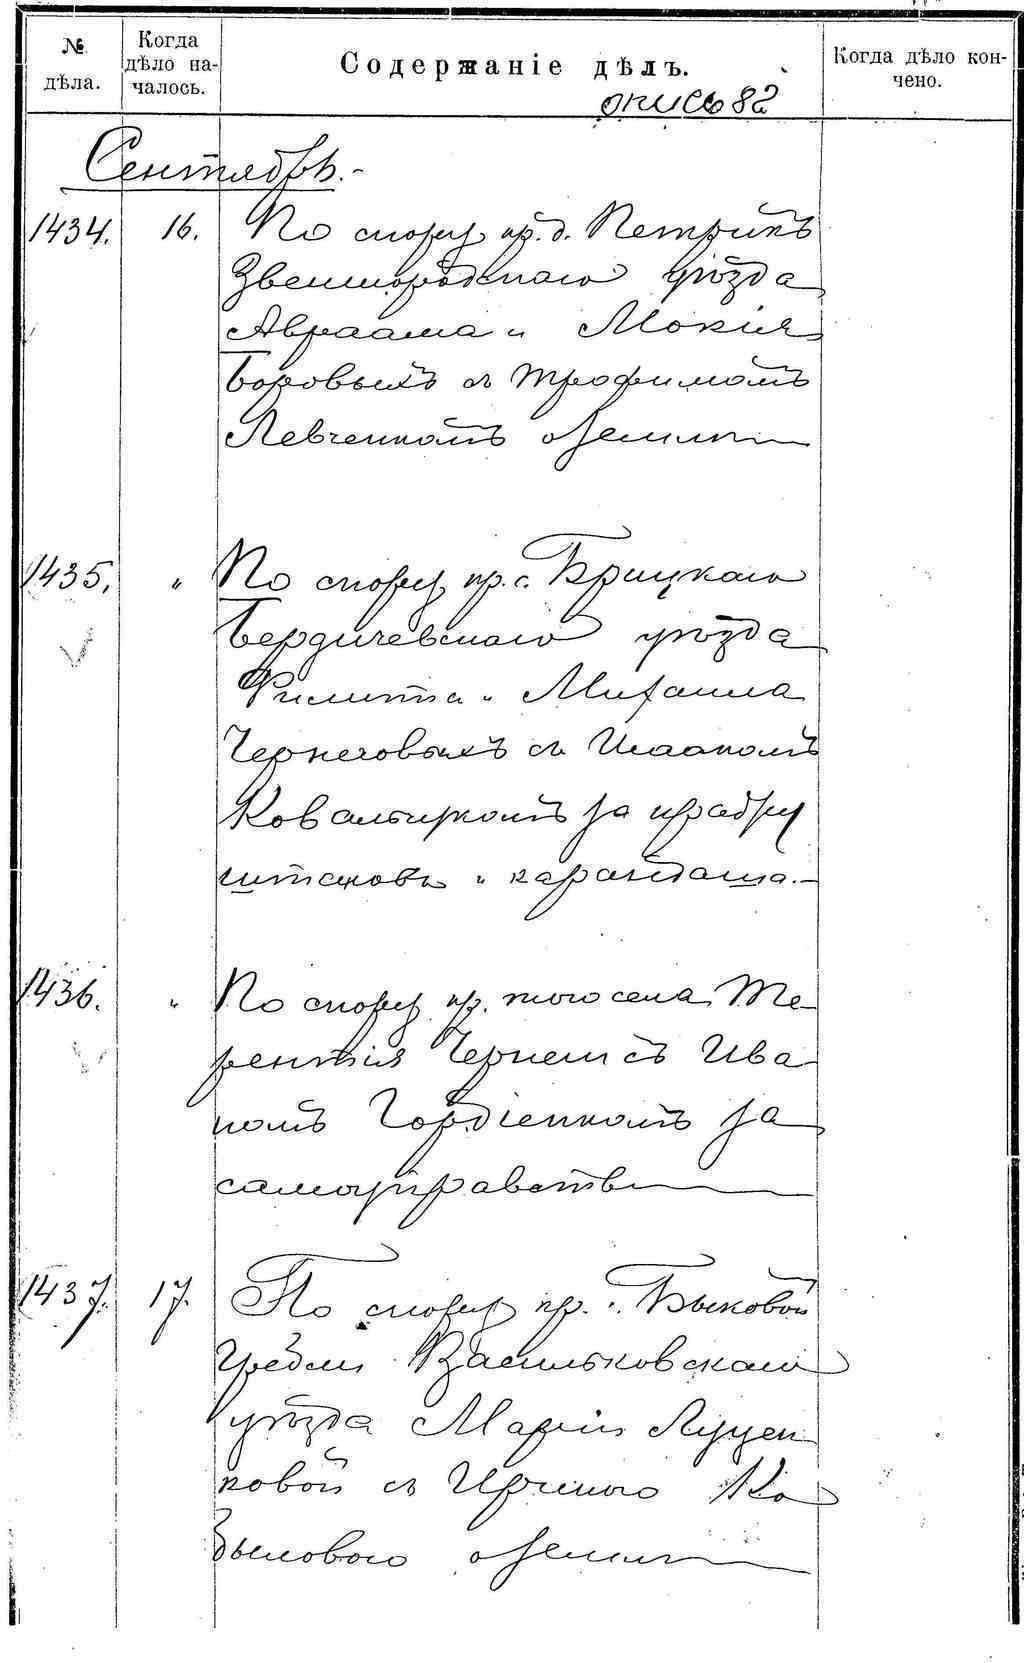 № дѣла. Когда дѣло на- чалось. Содержаніе дѣлъ. Когда дѣло кон- чено.
опись 82
Сентябрь.-
1434. 16. По спору кр. д. Петрикъ
Звенигородскаго уѣзда
Авраама и Мокія
Боровыхъ съ Трофимомъ
Левченкомъ о земли
1435. " По спору кр. с. Брицкаго
Бердичевскаго уѣзда
Филиппа и Михаила
Чернеговыхъ съ Исаакомъ
Ковальчукомъ за кражу
штановъ и карандаша.-
1436. " По спору кр. того села Те-
рентія Чернеги съ Ива-
номъ Гордіенкомъ за
самоуправство
1437. 17. По спору кр. с. Быковой
Гребли Васильковскаго
уѣзда Маріи Луцен-
ковой съ Ириною Ко-
быловою о земли